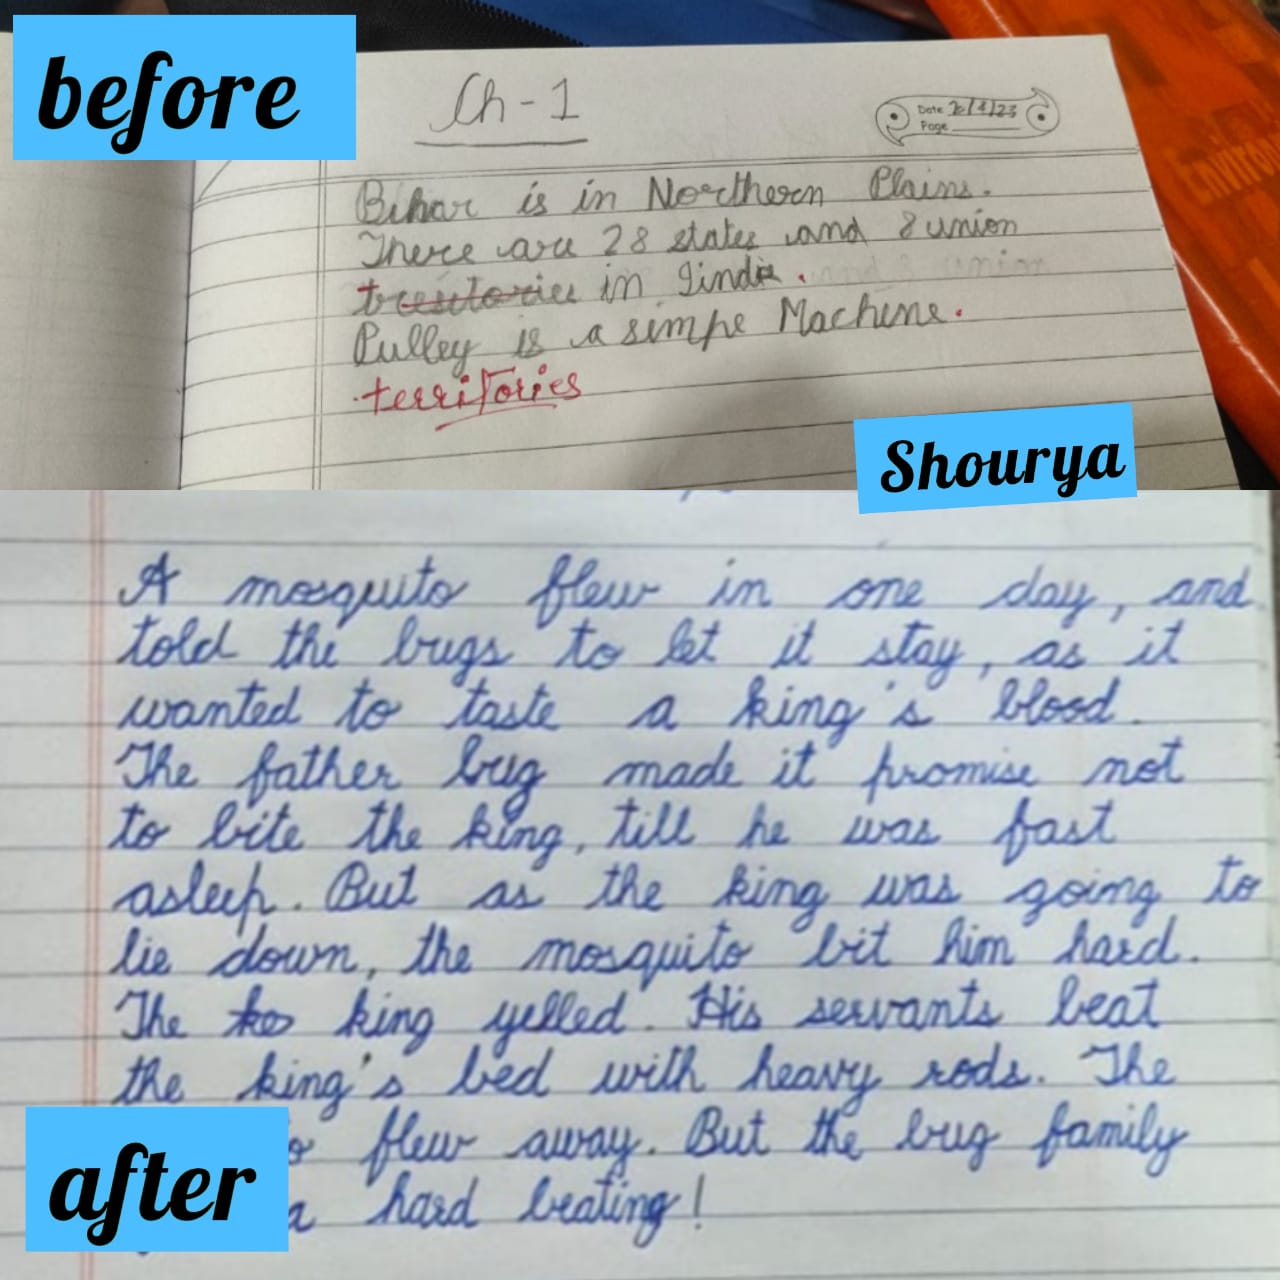 before
Ch-1
Date 20/4/23
Page
Bihar is in Northern Plains.
There are 28 states and 8 union
in India.
Pulley is a simpe Machine.
territories
ENVIRON
Shourya
A mosquito flew in one day, and
told the bugs to let it stay, as it
wanted to taste a king's blood.
The father bug made it promise not
to bite the king, till he was fast
asleep. But as the king was going to
lie down, the mosquito bit him hard.
The ko king yelled. His servants beat
the king's bed with heavy rods. The
o flew away. But the bug family
a hard beating!
after